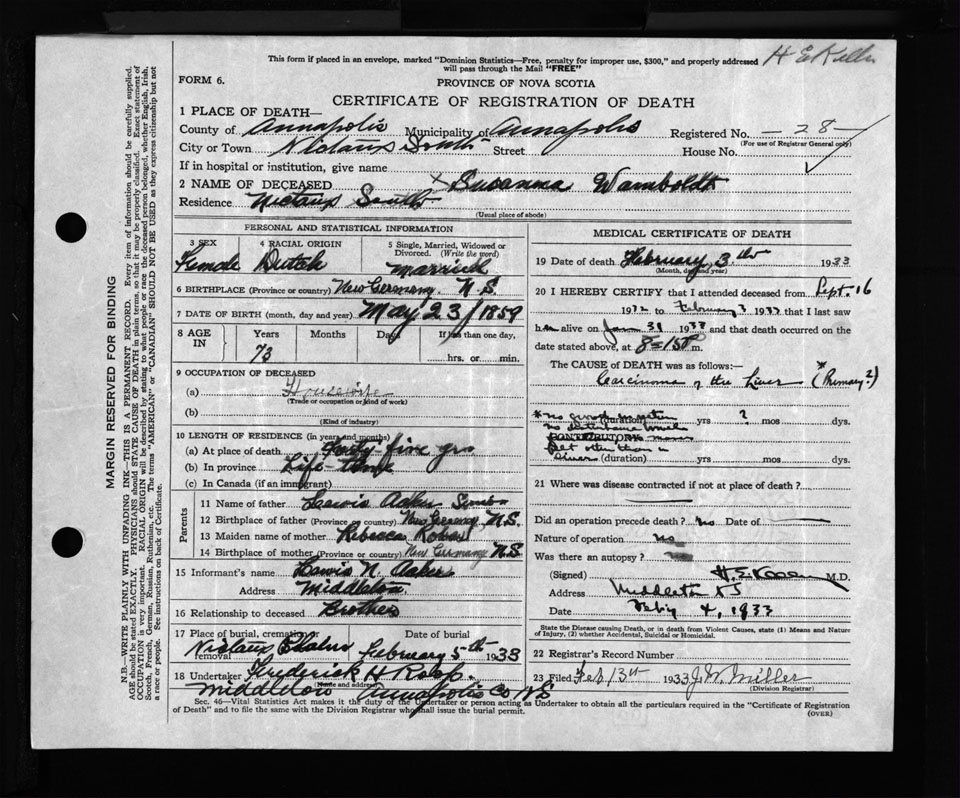 H E Kelley
This form if placed in an envelope, marked "Dominion Statistics—Free, penalty for improper use, $300," and properly addressed
will pass through the Mail "FREE"
FORM 6.
PROVINCE OF NOVA SCOTIA
CERTIFICATE OF REGISTRATION OF DEATH
1 PLACE OF DEATH—
County of Annapolis Municipality of Annapolis Registered No. —28—
(For use of Registrar General only)
City or Town Nictaux South Street House No.
If in hospital or institution, give name
2 NAME OF DECEASED X Susanna Wamboldt
Residence Nictaux South
(Usual place of abode)
PERSONAL AND STATISTICAL INFORMATION
3 SEX 4 RACIAL ORIGIN 5 Single, Married, Widowed or Divorced. (Write the word)
Female Dutch Married
6 BIRTHPLACE (Province or country) New Germany. N.S.
7 DATE OF BIRTH (month, day and year) May 23/1859
8 AGE IN Years Months Days If less than one day,
73 hrs. or min.
9 OCCUPATION OF DECEASED
(a) Housewife
(Trade or occupation or kind of work)
(b)
(Kind of industry)
10 LENGTH OF RESIDENCE (in years and months)
(a) At place of death Forty-five yrs
(b) In province Life-time
(c) In Canada (if an immigrant)
Parents
11 Name of father Lewis Acker
12 Birthplace of father (Province or country) New Germany N.S.
13 Maiden name of mother Rebecca
14 Birthplace of mother (Province or country) New Germany N.S
15 Informant's name Lewis N. Acker
Address Middleton
16 Relationship to deceased Brother
17 Place of burial, cremation or removal Date of burial
Nictaux February 5th 1933
18 Undertaker Fredrick H Roop.
(Name and address)
Middleton Annapolis Co NS
MEDICAL CERTIFICATE OF DEATH
19 Date of death February 3th 1933
(Month, day and year)
20 I HEREBY CERTIFY that I attended deceased from Sept. 16
1932 to February 3 1933 that I last saw
her alive on Jan 31 1933 and that death occurred on
date stated above, at 8-15 P m.
The CAUSE of DEATH was as follows:—
Carcinoma of the Liver (*Primary?)
(duration) yrs ? mos. dys.
CONTRIBUTORY
(duration) yrs mos dys.
21 Where was disease contracted if not at place of death?
Did an operation precede death? No Date of
Nature of operation No
Was there an autopsy? No
(Signed) H. E. Kelley M.D.
Address Middleton NS
Date Feb'y 4, 1933
State the Disease causing Death, or in death from Violent Causes, state (1) Means and
Nature of Injury, (2) whether Accidental, Suicidal or Homicidal.
22 Registrar's Record Number
23 Filed Feb 13th 1933 J.W. Miller
(Division Registrar)
Sec. 46—Vital Statistics Act makes it the duty of the Undertaker or person acting as Undertaker to obtain all the particulars required in the "Certificate of Registration
of Death" and to file the same with the Division Registrar who shall issue the burial permit.
(OVER)
MARGIN RESERVED FOR BINDING
N.B.—WRITE PLAINLY WITH UNFADING INK—THIS IS A PERMANENT RECORD. Every item of information should be carefully supplied.
AGE should be stated EXACTLY. PHYSICIANS should STATE CAUSE OF DEATH in plain terms, so that it may be properly classified. Exact statement of
OCCUPATION is very important. RACIAL ORIGIN will be described by stating to what people or race the deceased person belonged, whether English, Irish,
Scotch, French, German, Russian, Ruthenian, etc. The terms "AMERICAN" or "CANADIAN" SHOULD NOT BE USED as they express citizenship but not
a race or people. See instructions on back of Certificate.